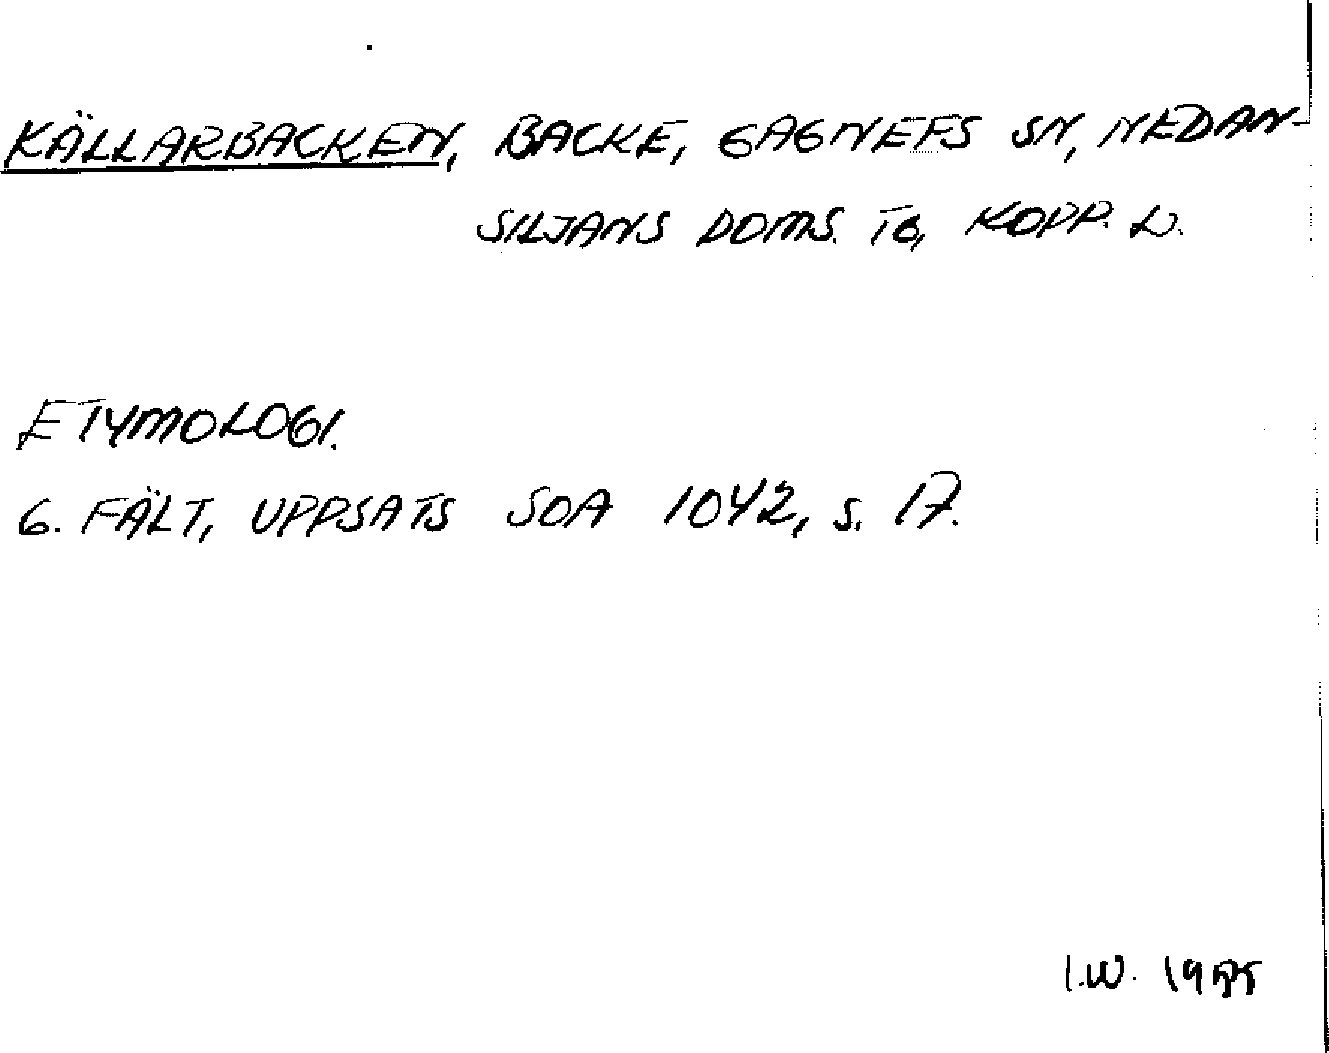 KÄLLARBACKEN, BACKE, GAGNEFS SN, NEDAN-
SILJANS DOMS. TG, KOPP. L.
ETYMOLOGI.
G. FÄLT, UPPSATS SOA 1042, S. 17.
I.W.